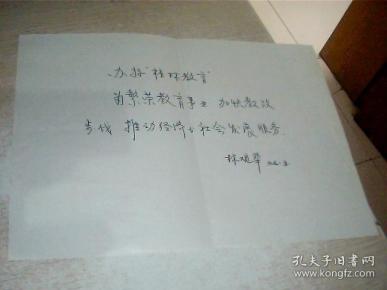 办好“桂林教育”
为繁荣教育事业 加快教改
步伐 推动经济与社会发展服务
孔夫子旧书网
www.kongfz.com